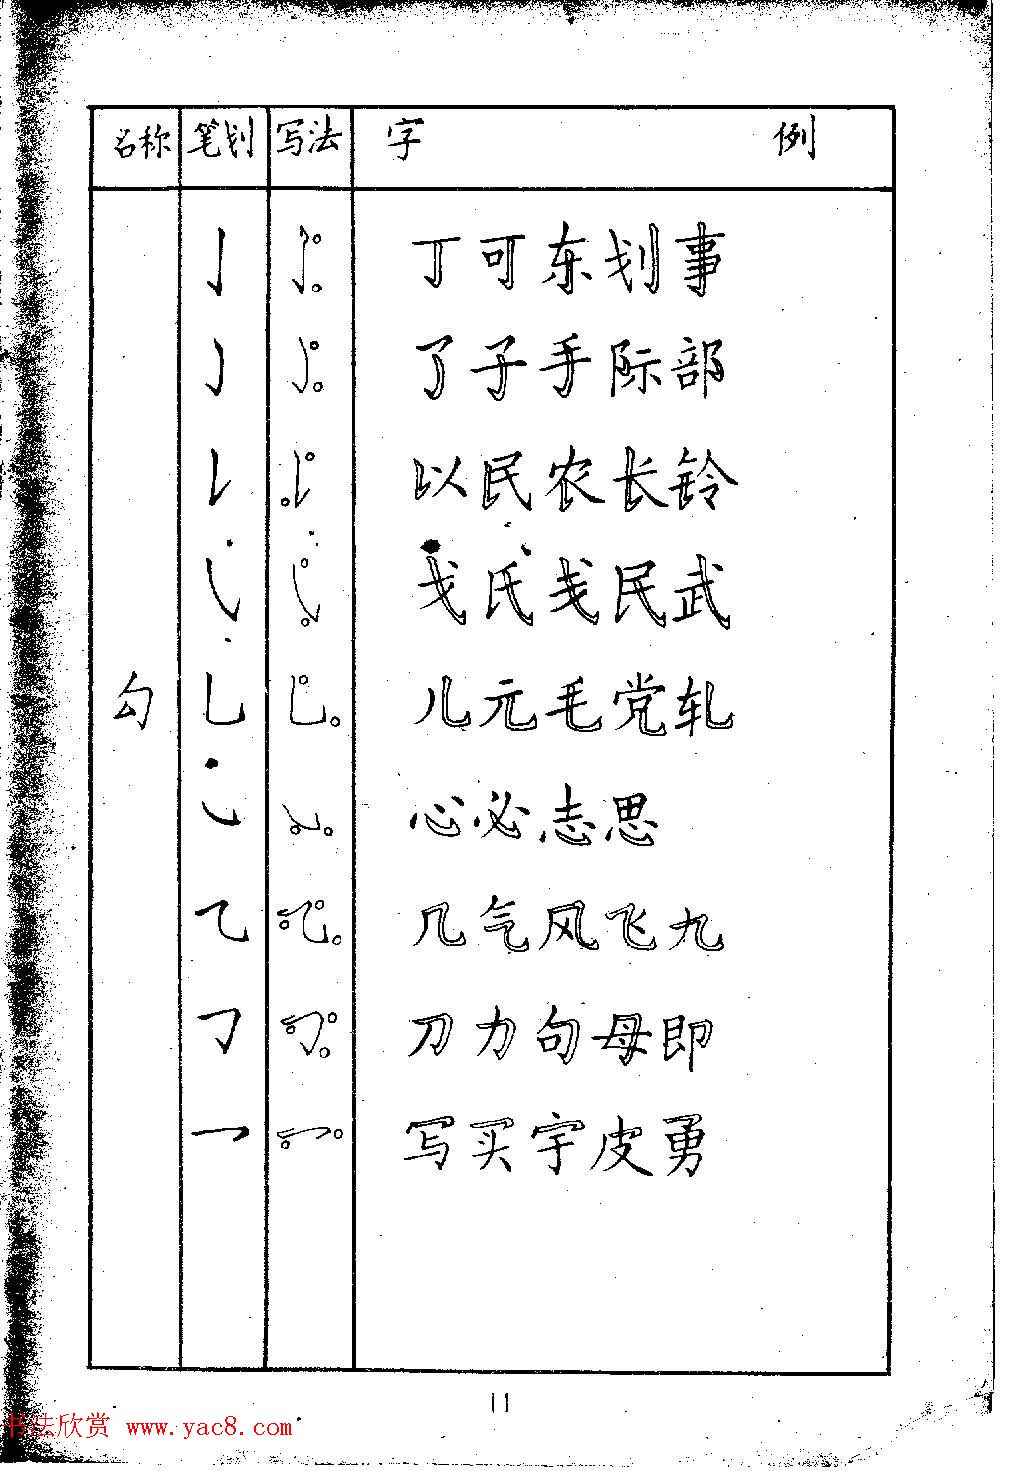 名称 笔划 写法 字 例
亅 丁可东划事
了子手际部
以民农长铃
戈氏戋民武
勾 乚 儿元毛党轧
心必志思
乁 几气风飞九
𠃌 刀力句母即
乛 写买宇皮勇
11
书法欣赏 www.yac8.com